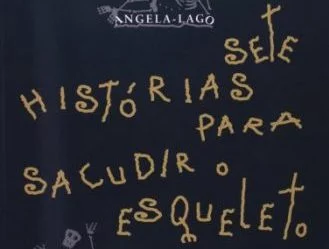 ANGELA-LAGO
SETE
HISTÓRIAS
PARA
SACUDIR O
ESQUELETO